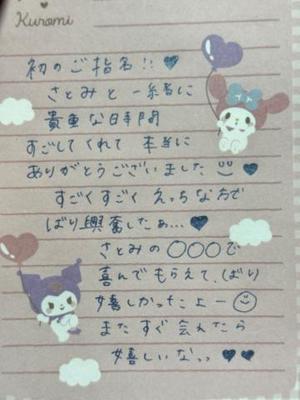 Kuromi
初のご指名!!♥
さとみと一緒に
貴重な時間
すごしてくれて 本当に
ありがとうございました ♥
すごくすごく えっちな方で
ばり興奮したぁ…♥
さとみの〇〇〇で
喜んでもらえて、ばり
嬉しかったよー
またすぐ会えたら
嬉しいなっっ ♥♥